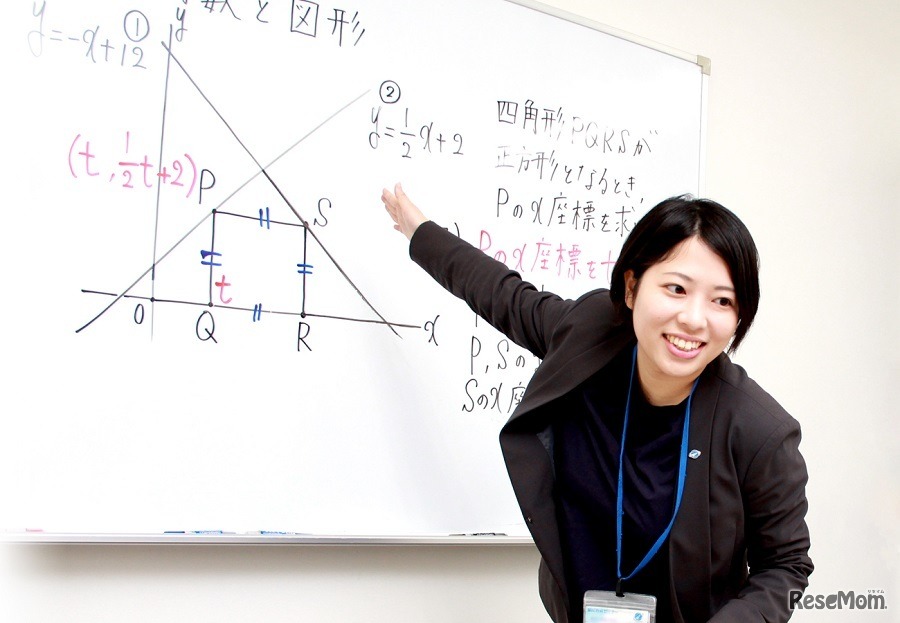 数と図形
y
①
y=-x+12
②
y=1/2x+2
(t, 1/2t+2)
P
S
t
O
Q
R
x
四角形PQRSが
正方形となるとき
Pのx座標を求
Pのx座標をt
P, Sの
Sのx座
ReseMom.
リセマム